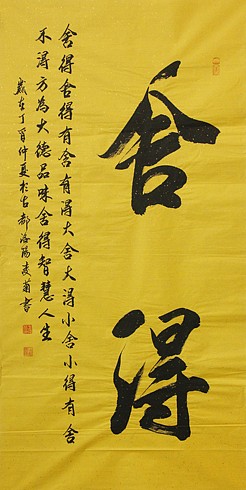 舍得
舍得舍得有舍有得大舍大得小舍小得有舍
不得方為大德品味舍得智慧人生
歲在丁酉仲夏於古都洛陽書